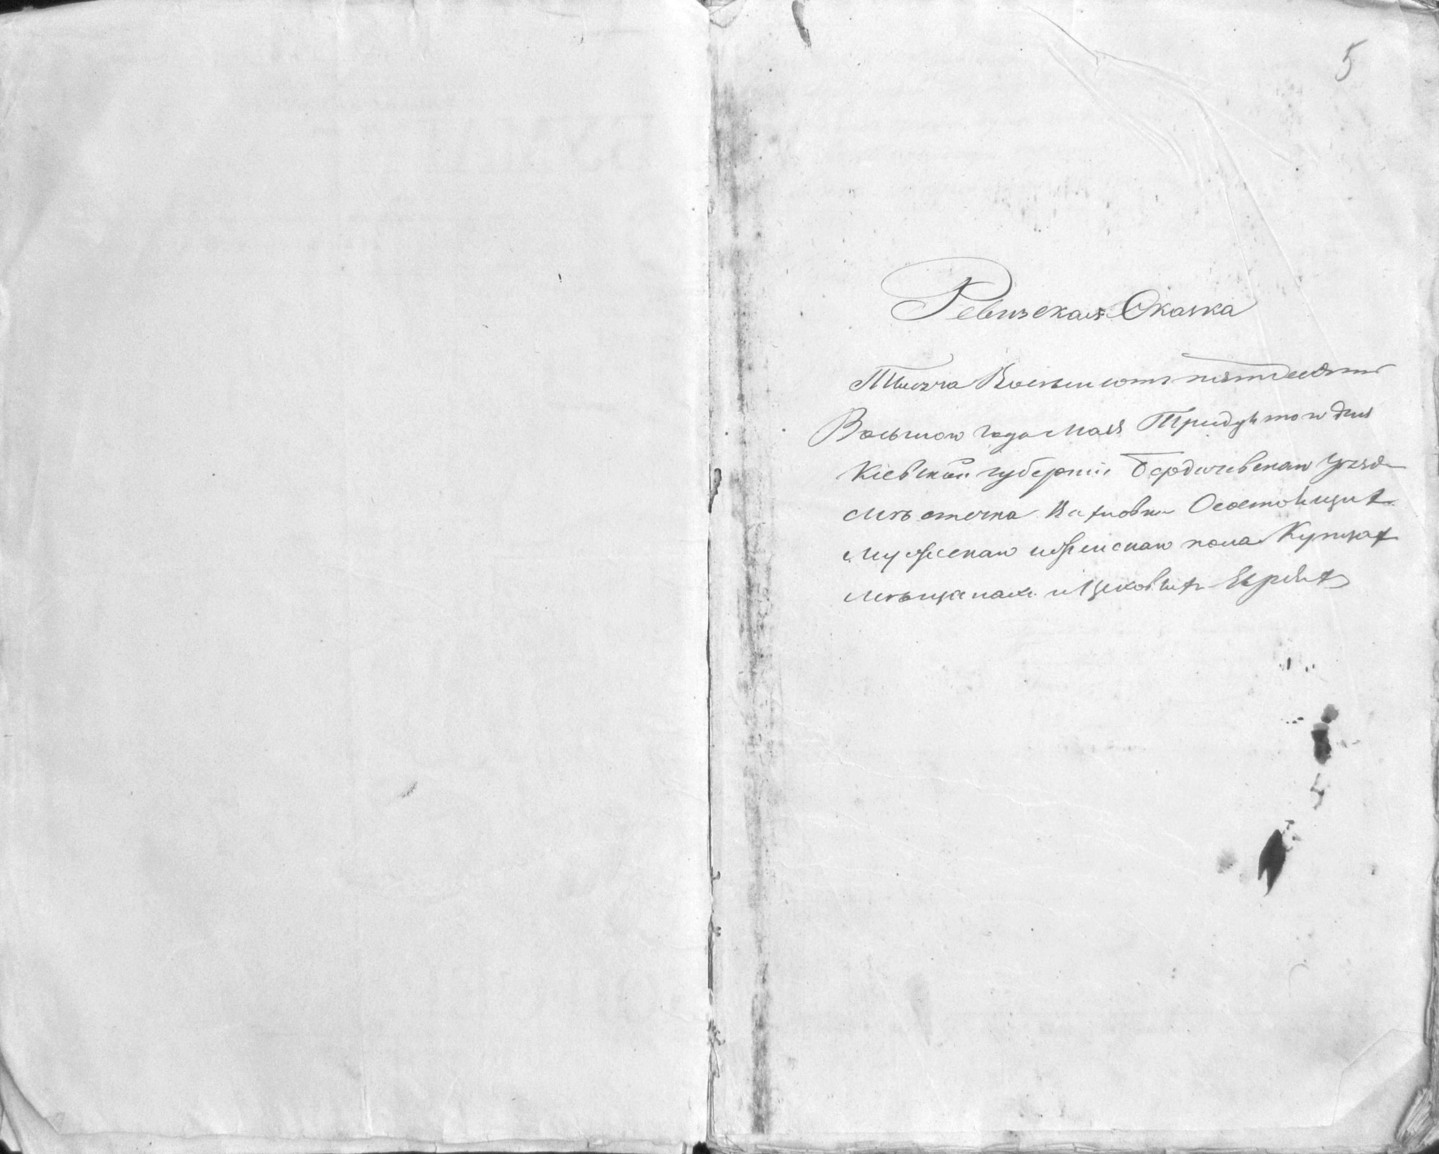 5
Ревизская Сказка
Тысяча Восемьсотъ пятьдесятъ
Восьмого года мая Тридцатого дня
Кіевской губерніи Бердичевскаго уезда
мѣстечка Вахновки О состоящихъ
мужескаго и женскаго пола Купцахъ
мѣщанахъ и Цеховыхъ Евреяхъ